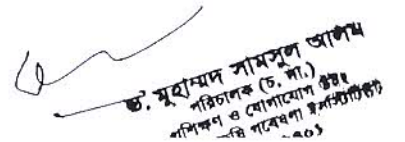 ড. মুহাম্মদ সামসুল আলম
পরিচালক (চ. দা.)
প্রশিক্ষণ ও যোগাযোগ উইং
কৃষি গবেষণা